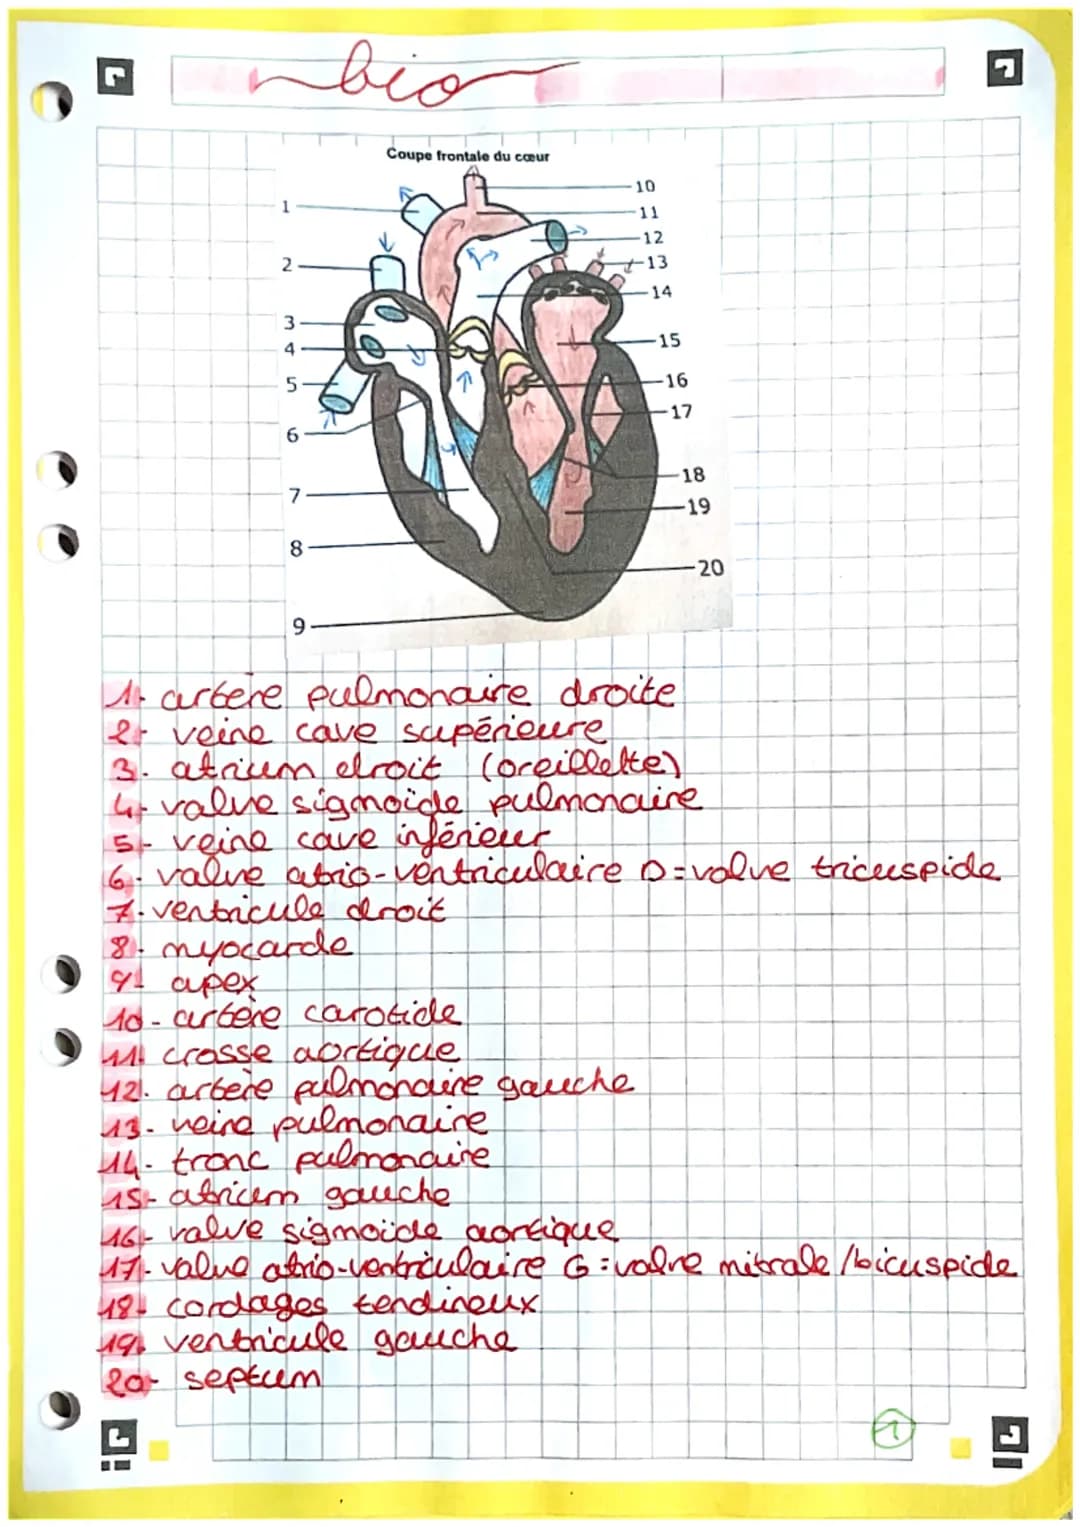 bio
Coupe frontale du cœur
1
2
3
4
5
6
7
8
9
10
11
12
13
14
15
16
17
18
19
20
1- artère pulmonaire droite
2- veine cave supérieure
3. atrium droit (oreillette)
4- valve sigmoïde pulmonaire
5- veine cave inférieur
6. valve atrio-ventriculaire D = valve tricuspide
7. ventricule droit
8. myocarde
9- apex
10- artère carotide
11. crosse aortique
12. artère pulmonaire gauche
13. veine pulmonaire
14. tronc pulmonaire
15- atrium gauche
16- valve sigmoïde aortique
17. valve atrio-ventriculaire G = valve mitrale /bicuspide
18- cordages tendineux
19. ventricule gauche
20- septum
1